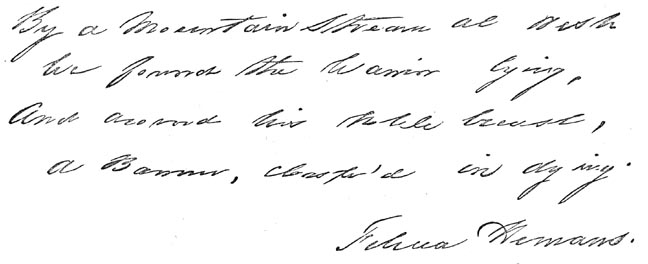 By a Mountain Stream at rest
We found the Warrior lying,
And around his noble breast,
a Banner, clasp'd in dying.
Felicia Hemans.